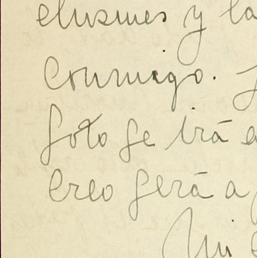 chismes y la
conmigo.
foto se irá a
creo será a
Mi